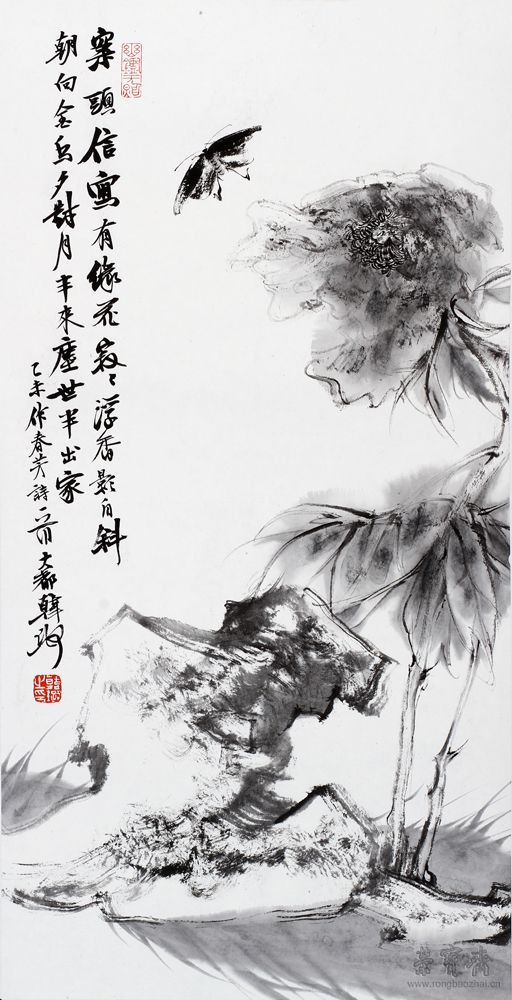 案頭信寫有緣花寂〻浮香影自斜
朝向金烏夕對月半來塵世半出家
乙未作春芳詩一首 大都韓
榮寶齋
www.rongbaozhai.cn